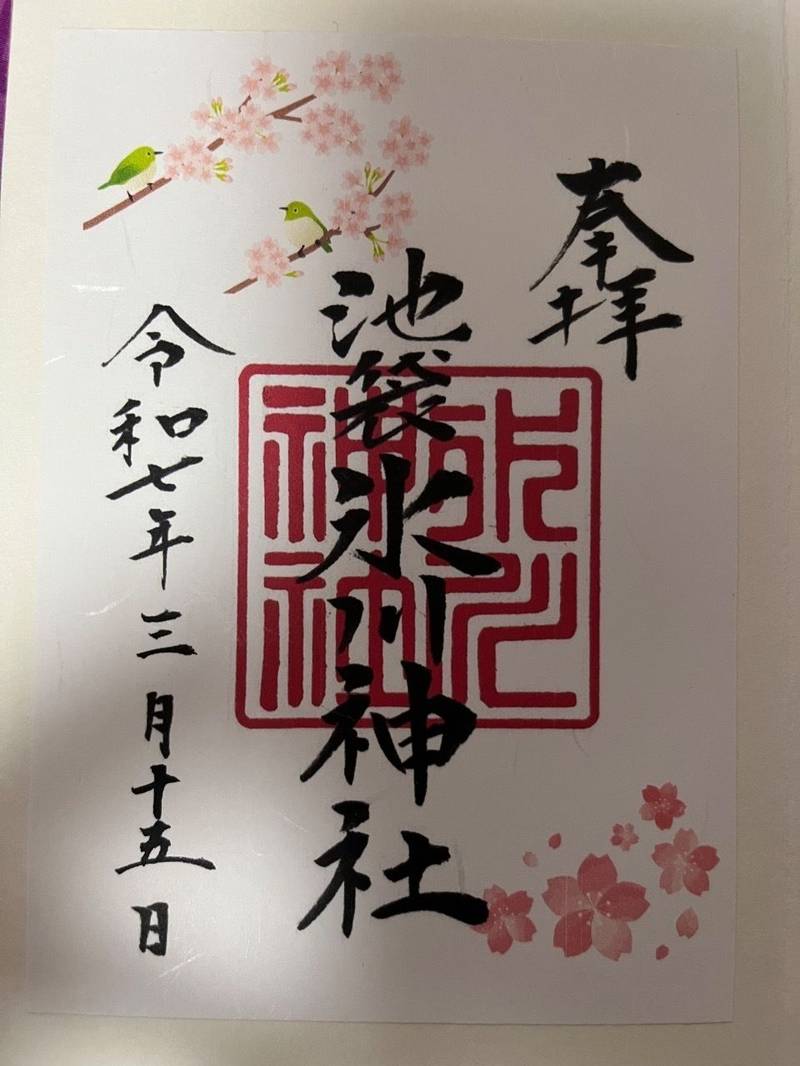 奉拝
池袋氷川神社
氷川
神社
令和七年三月十五日